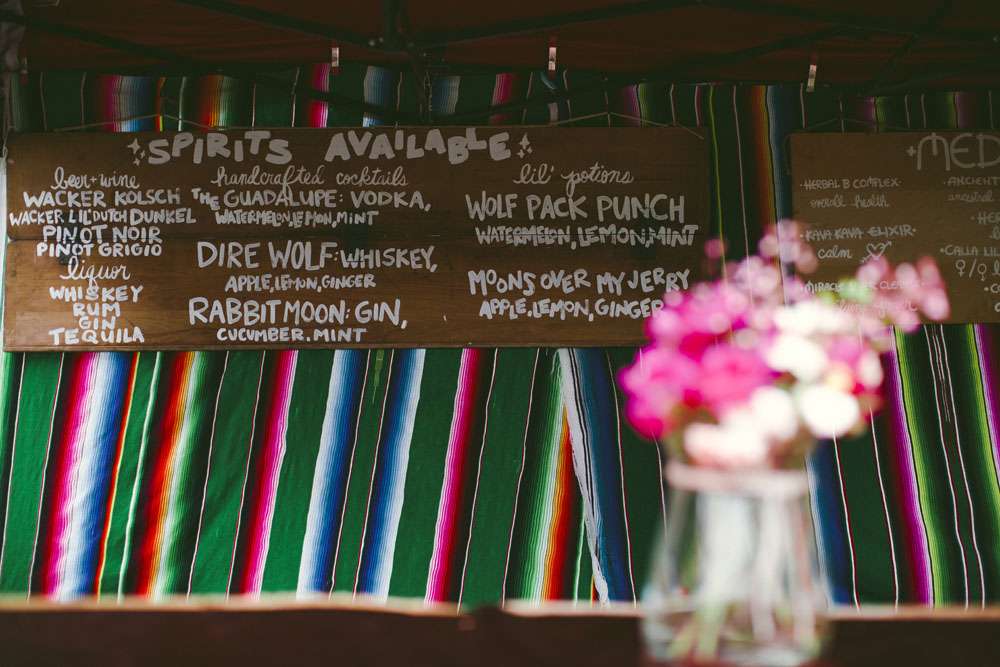 SPIRITS AVAILABLE
beer + wine
WACKER KOLSCH
WACKER LIL' DUTCH DUNKEL
PINOT NOIR
PINOT GRIGIO
liquor
WHISKEY
RUM
GIN
TEQUILA
handcrafted cocktails
THE GUADALUPE: VODKA,
WATERMELON, LEMON, MINT
DIRE WOLF: WHISKEY,
APPLE, LEMON, GINGER
RABBIT MOON: GIN,
CUCUMBER, MINT
lil' potions
WOLF PACK PUNCH
WATERMELON, LEMON, MINT
MOONS OVER MY JERRY
APPLE, LEMON, GINGER
MED
·HERBAL B COMPLEX·
overall health
·KAVA KAVA ELIXIR·
calm
·ANCIENT
ancestral
·CALLA LI